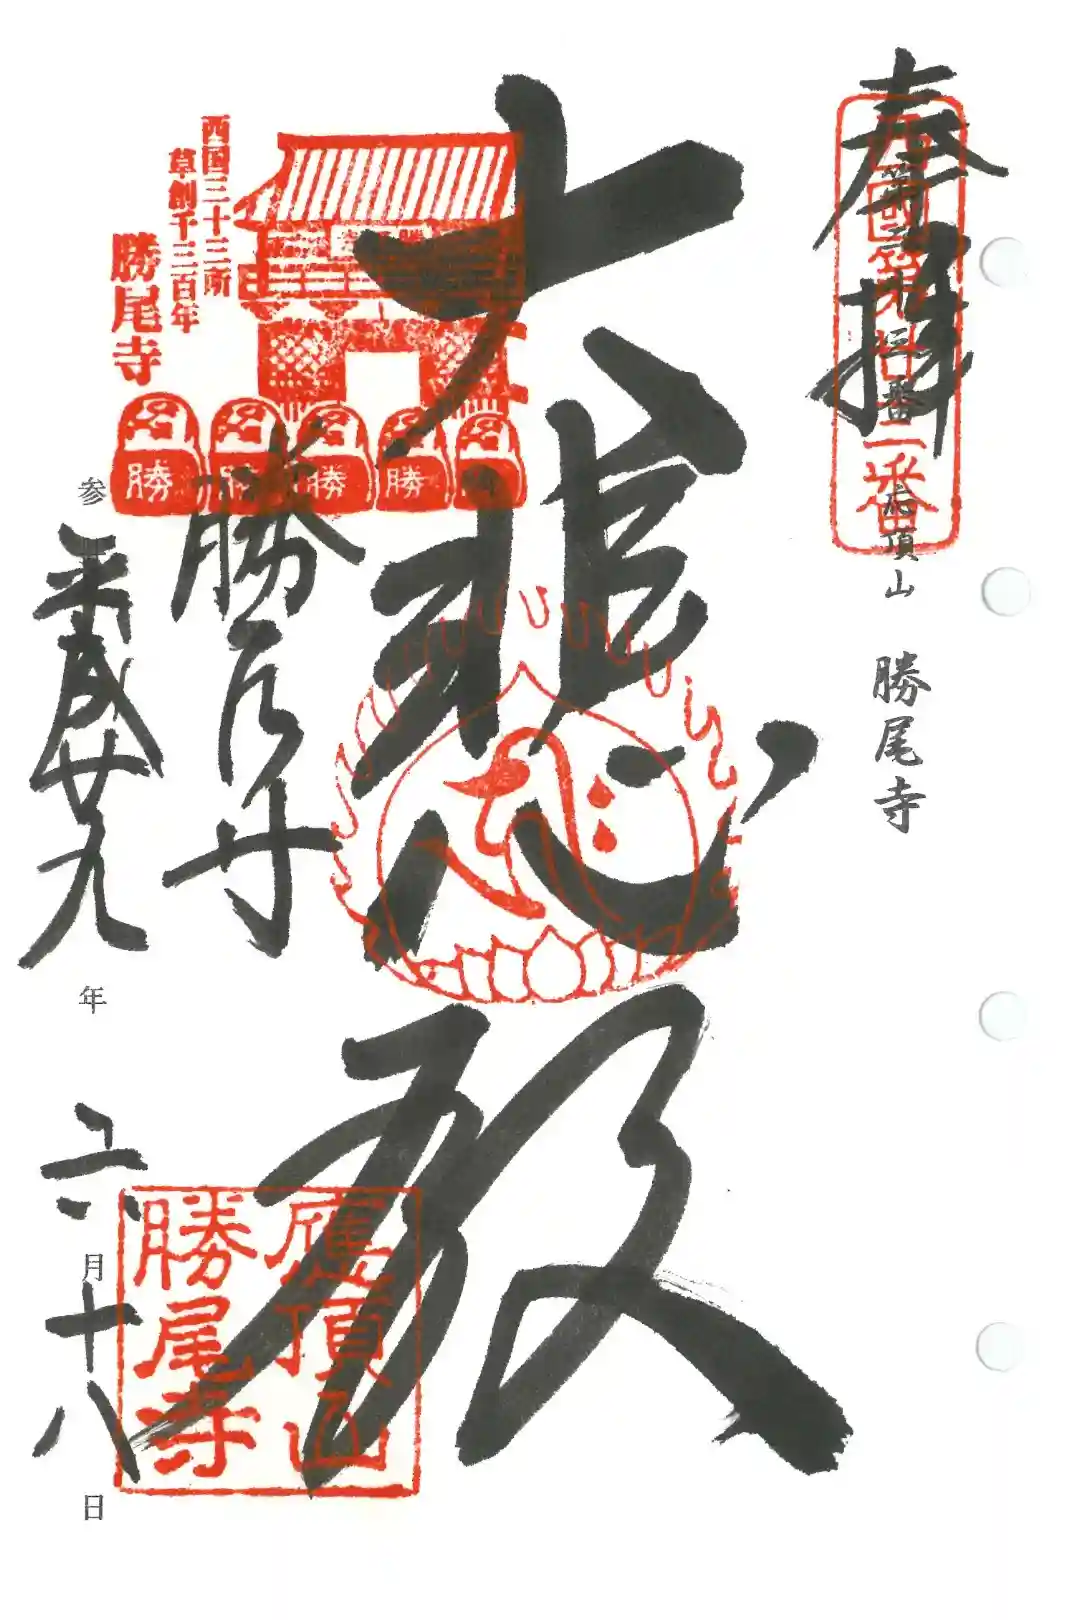 奉拝
西国第廿三番
應頂山 勝尾寺
大悲殿
西国三十三所
草創千三百年
勝尾寺
勝
勝
勝
勝
勝尾寺
參 平成廿九年 六月十八日
應頂山
勝尾寺